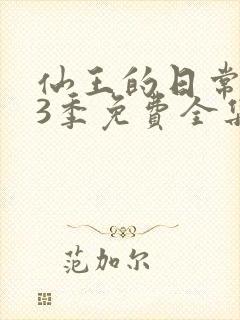 仙王的日常
3季免費全集
范加尔